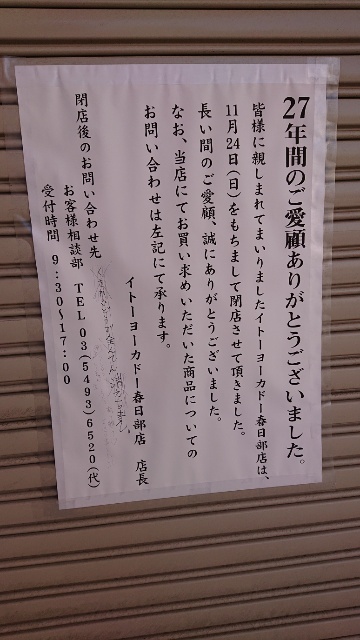 27年間のご愛顧ありがとうございました。
皆様に親しまれてまいりましたイトーヨーカドー春日部店は、
11月24日(日)をもちまして閉店させて頂きました。
長い間のご愛顧、誠にありがとうございました。
なお、当店にてお買い求めいただいた商品についての
お問い合わせは左記にて承ります。
イトーヨーカドー春日部店 店長
閉店後のお問い合わせ先
お客様相談部 TEL 03(5493)6520(代)
受付時間 9:30~17:00